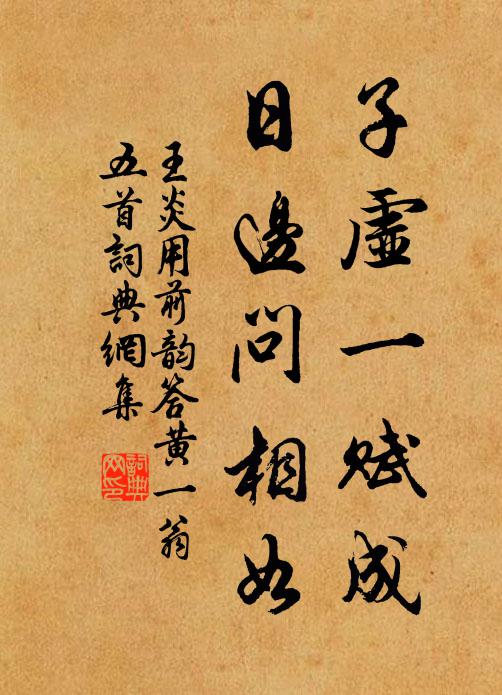 子虛一賦成
日邊問相如
王炎用前韵答黃一翁
五首詞典網集
詞典
网印